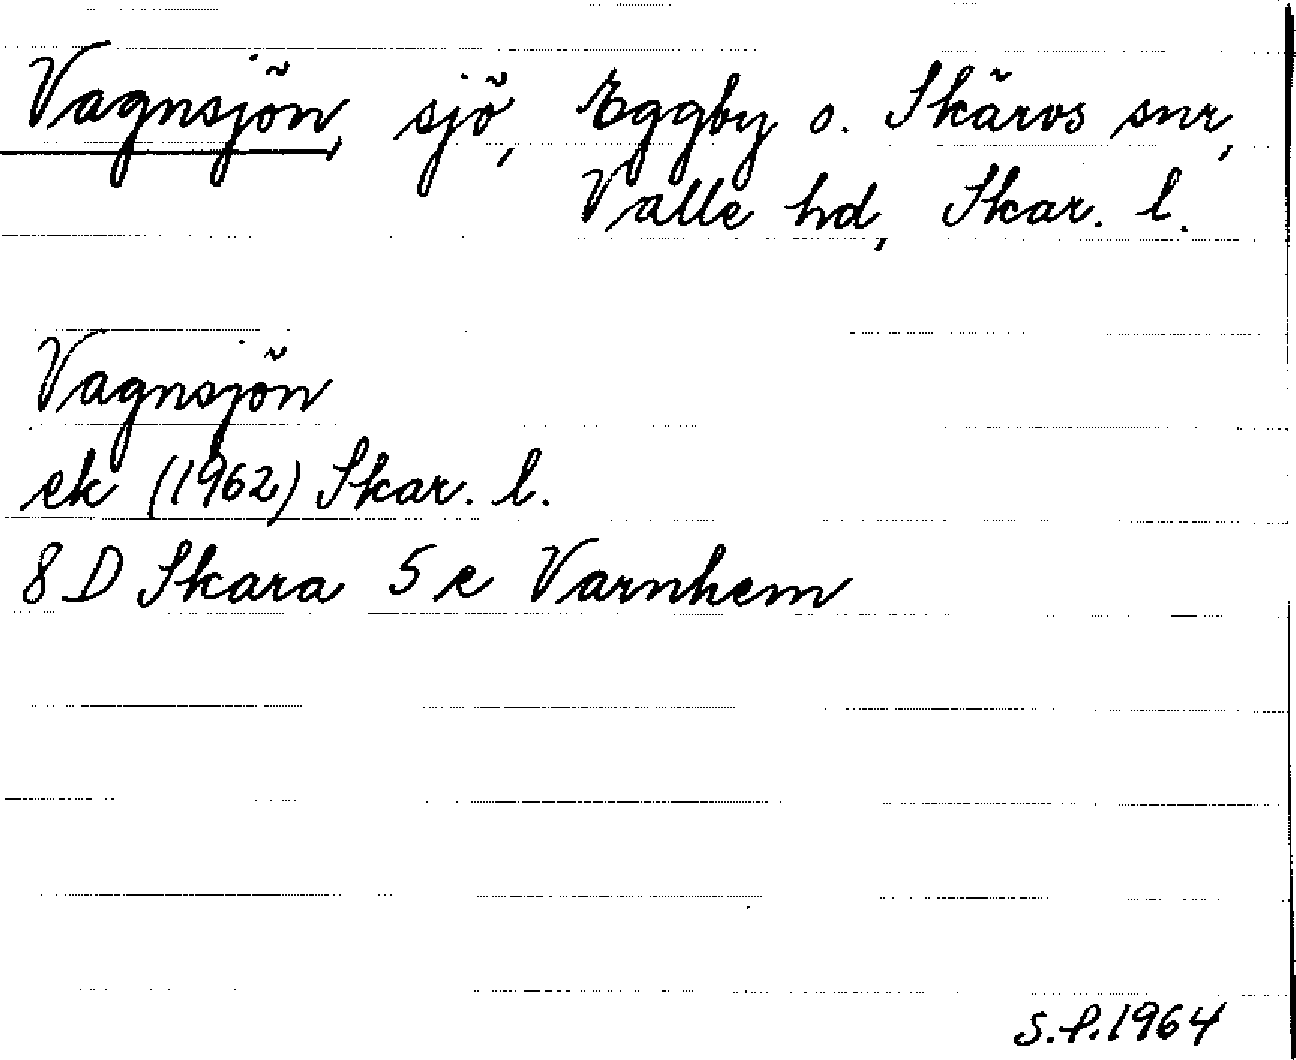 Vagnsjön, sjö, Eggby o. Skärvs snr,
Valle hd, Skar. l.
Vagnsjön
ek (1962) Skar. l.
8 D Skara 5 e Varnhem
S.P.1964